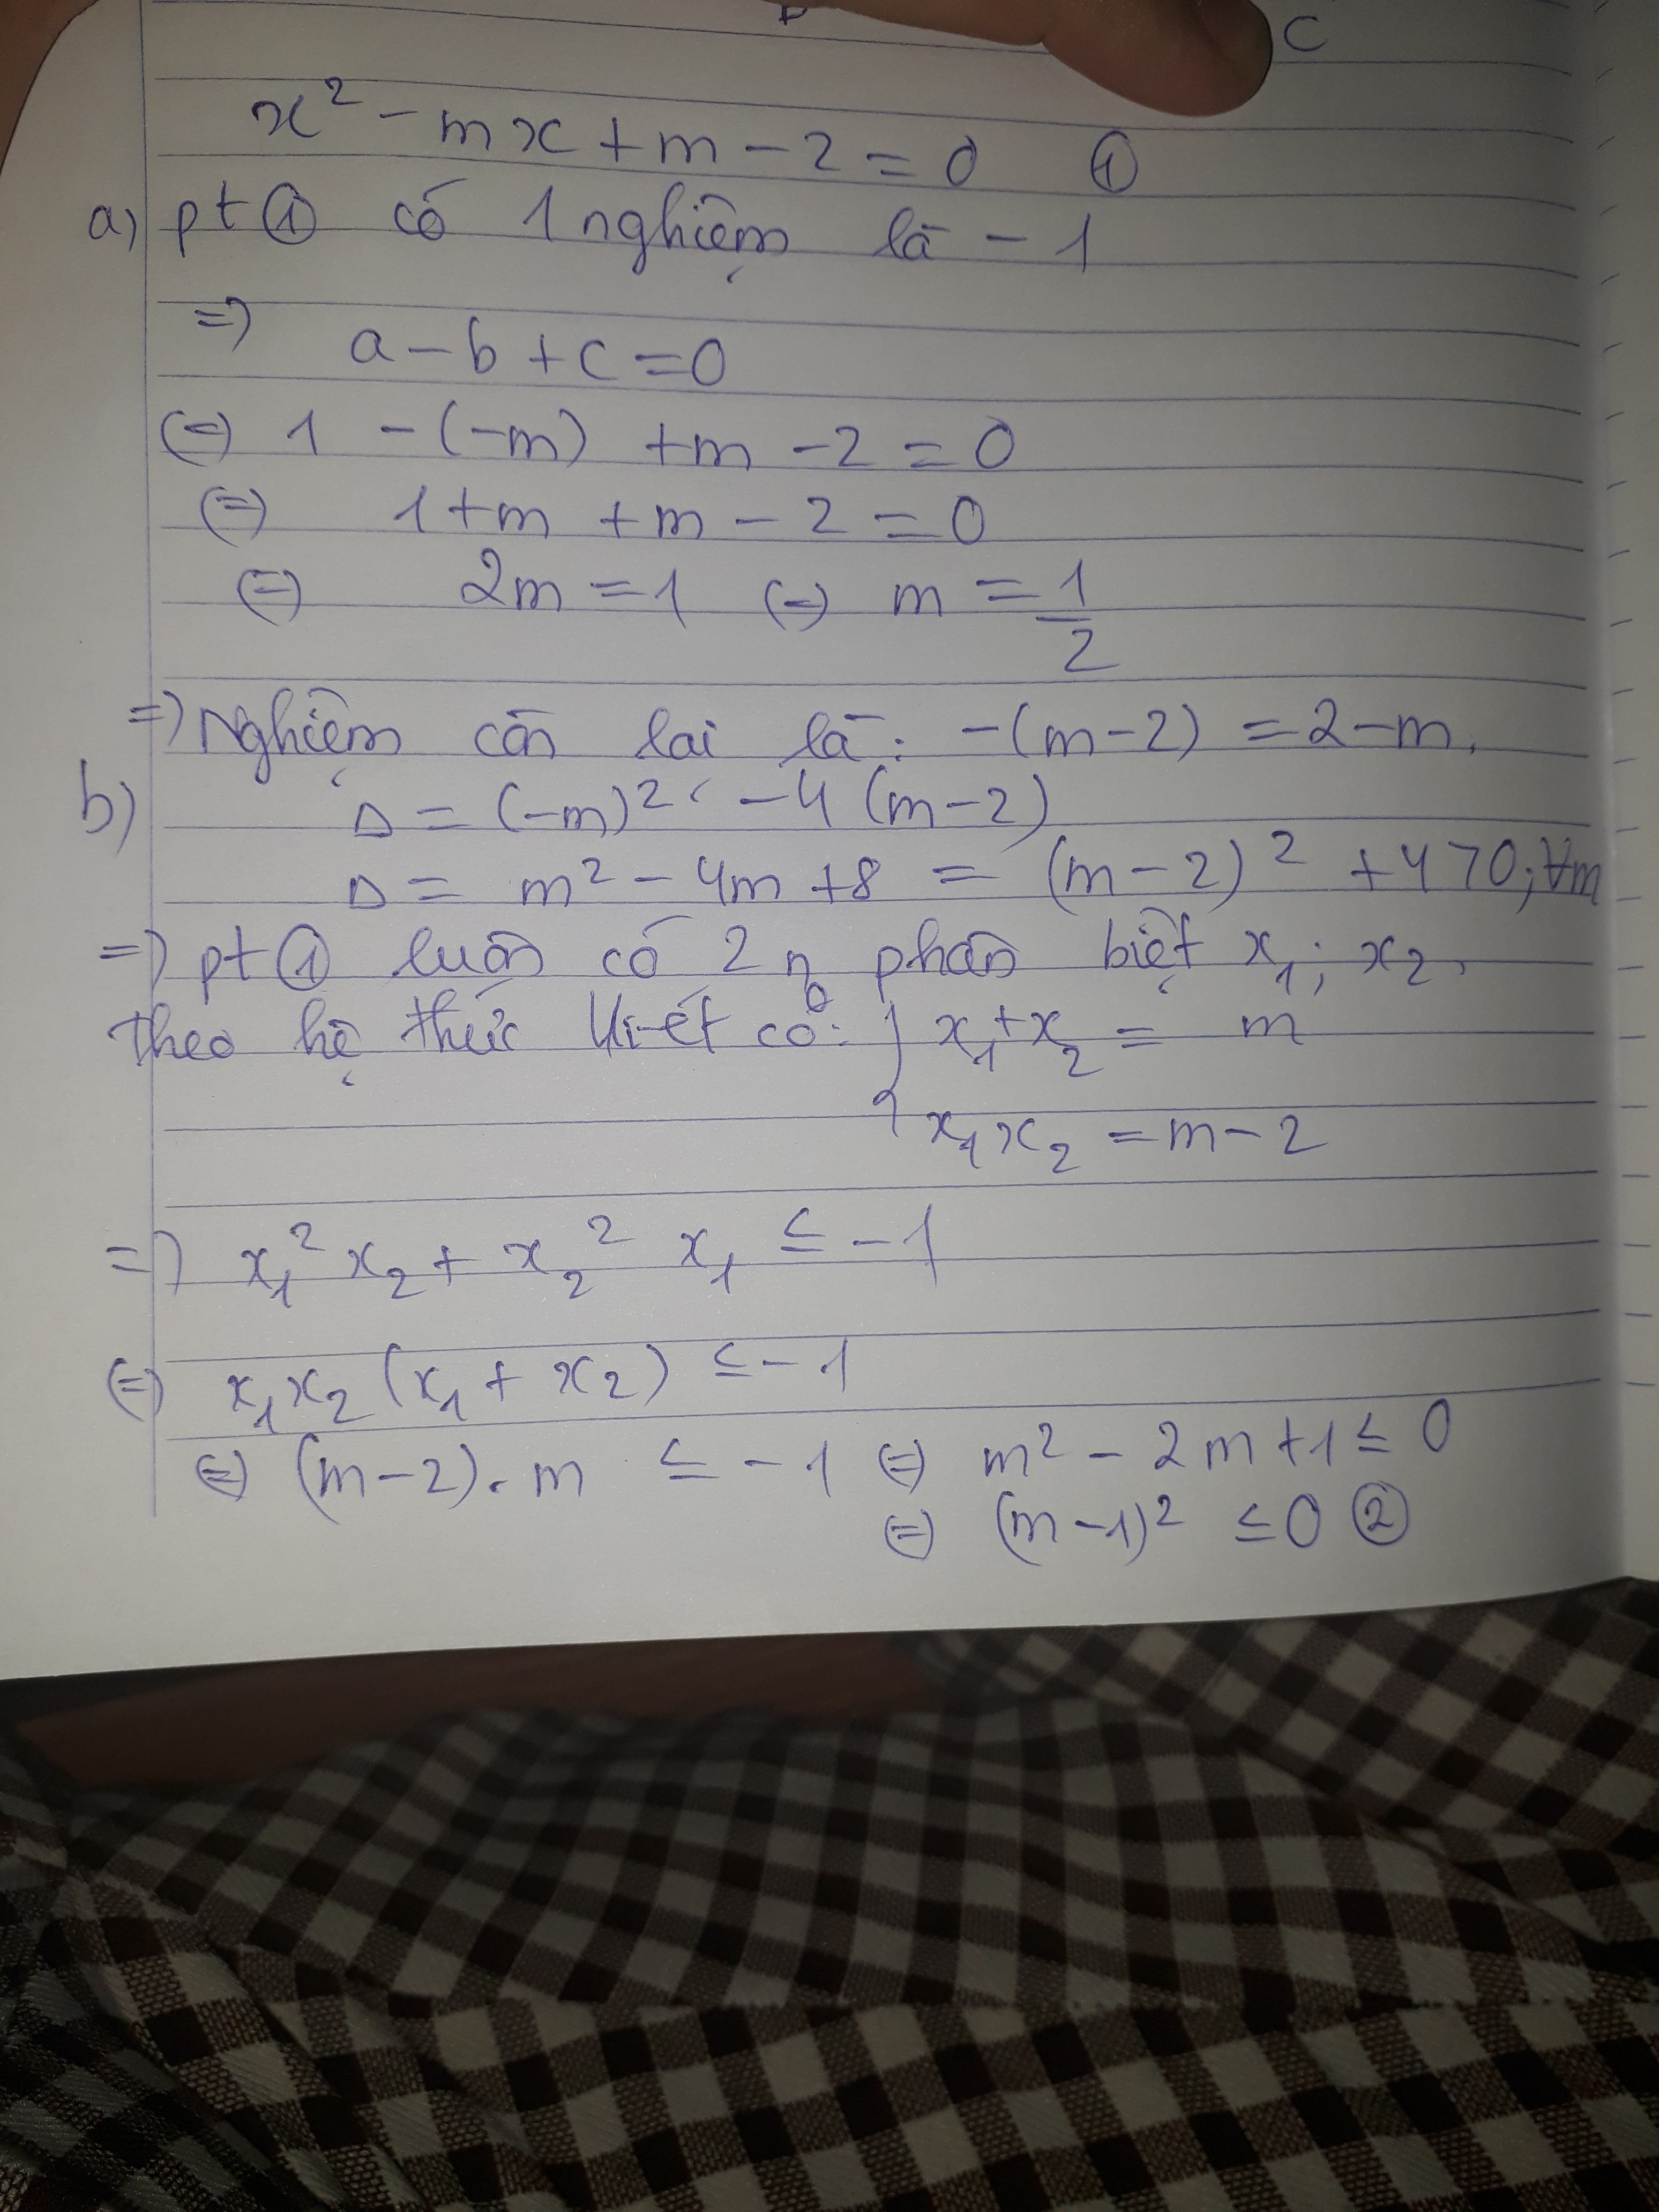 C
x² - mx + m - 2 = 0 ①
a) pt ① có 1 nghiệm là - 1
=) a - b + c = 0
(=) 1 - (-m) + m - 2 = 0
(=) 1 + m + m - 2 = 0
(=) 2m = 1 (=) m = 1/2
=) Nghiệm còn lại là: -(m-2) = 2 - m.
b) Δ = (-m)² - 4 (m-2)
Δ = m² - 4m + 8 = (m-2)² + 4 > 0; ∀m
=) pt ① luôn có 2 n₀ phân biệt x₁; x₂.
Theo hệ thức Vi-ét có: { x₁ + x₂ = m
x₁x₂ = m - 2
=) x₁² x₂ + x₂² x₁ ≤ -1
(=) x₁x₂ (x₁ + x₂) ≤ -1
(=) (m-2). m ≤ -1 (=) m² - 2m + 1 ≤ 0
(=) (m-1)² ≤ 0 ②